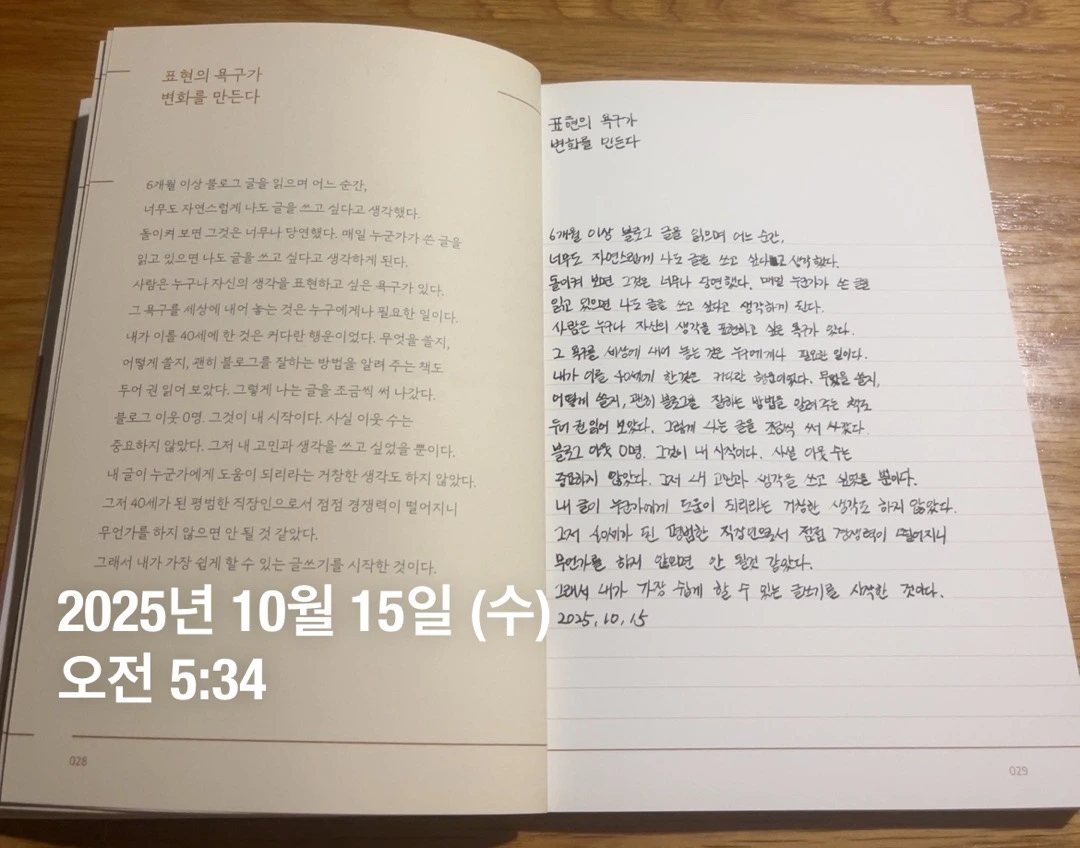 표현의 욕구가
변화를 만든다
6개월 이상 블로그 글을 읽으며 어느 순간,
너무도 자연스럽게 나도 글을 쓰고 싶다고 생각했다.
돌이켜 보면 그것은 너무나 당연했다. 매일 누군가가 쓴 글을
읽고 있으면 나도 글을 쓰고 싶다고 생각하게 된다.
사람은 누구나 자신의 생각을 표현하고 싶은 욕구가 있다.
그 욕구를 세상에 내어 놓는 것은 누구에게나 필요한 일이다.
내가 이를 40세에 한 것은 커다란 행운이었다. 무엇을 쓸지,
어떻게 쓸지, 괜히 블로그를 잘하는 방법을 알려 주는 책도
두어 권 읽어 보았다. 그렇게 나는 글을 조금씩 써 나갔다.
블로그 이웃 0명. 그것이 내 시작이다. 사실 이웃 수는
중요하지 않았다. 그저 내 고민과 생각을 쓰고 싶었을 뿐이다.
내 글이 누군가에게 도움이 되리라는 거창한 생각도 하지 않았다.
그저 40세가 된 평범한 직장인으로서 점점 경쟁력이 떨어지니
무언가를 하지 않으면 안 될 것 같았다.
그래서 내가 가장 쉽게 할 수 있는 글쓰기를 시작한 것이다.
2025년 10월 15일 (수)
오전 5:34
028
표현의 욕구가
변화를 만든다
6개월 이상 블로그 글을 읽으며 어느 순간,
너무도 자연스럽게 나도 글을 쓰고 싶다고 생각했다.
돌이켜 보면 그것은 너무나 당연했다. 매일 누군가가 쓴 글을
읽고 있으면 나도 글을 쓰고 싶다고 생각하게 된다.
사람은 누구나 자신의 생각을 표현하고 싶은 욕구가 있다.
그 욕구를 세상에 내어 놓는 것은 누구에게나 필요한 일이다.
내가 이를 40세에 한 것은 커다란 행운이었다. 무엇을 쓸지,
어떻게 쓸지, 괜히 블로그를 잘하는 방법을 알려 주는 책도
두어 권 읽어 보았다. 그렇게 나는 글을 조금씩 써 나갔다.
블로그 이웃 0명. 그것이 내 시작이다. 사실 이웃 수는
중요하지 않았다. 그저 내 고민과 생각을 쓰고 싶었을 뿐이다.
내 글이 누군가에게 도움이 되리라는 거창한 생각도 하지 않았다.
그저 40세가 된 평범한 직장인으로서 점점 경쟁력이 떨어지니
무언가를 하지 않으면 안 될것 같았다.
그래서 내가 가장 쉽게 할 수 있는 글쓰기를 시작한 것이다.
2025. 10. 15
029